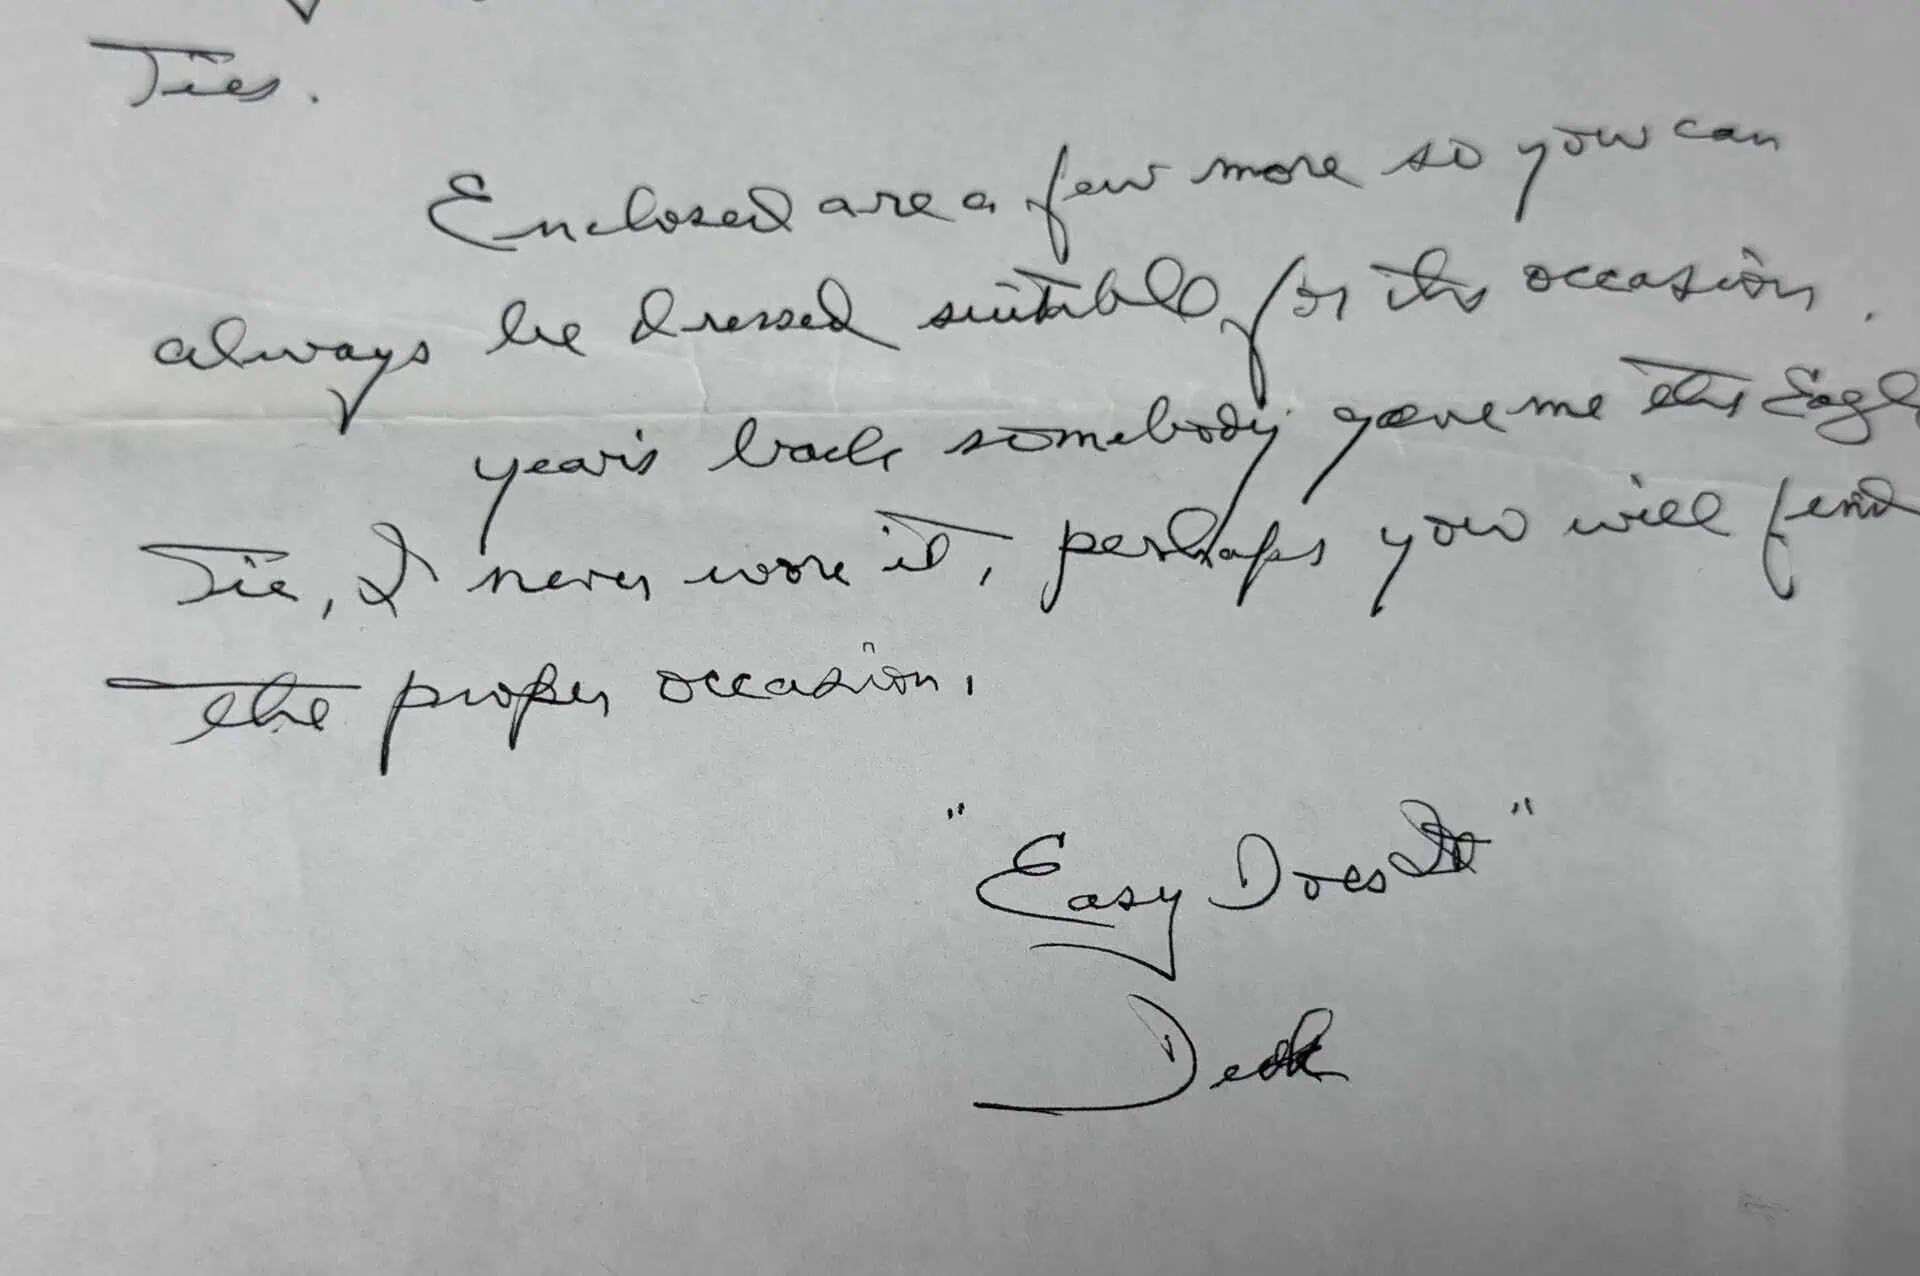 Ties.
Enclosed are a few more so you can
always be dressed suitable for the occasion.
year's back somebody gave me the Eagle
Tie, I never wore it, perhaps you will find
the proper occasion.
"Easy Does It"